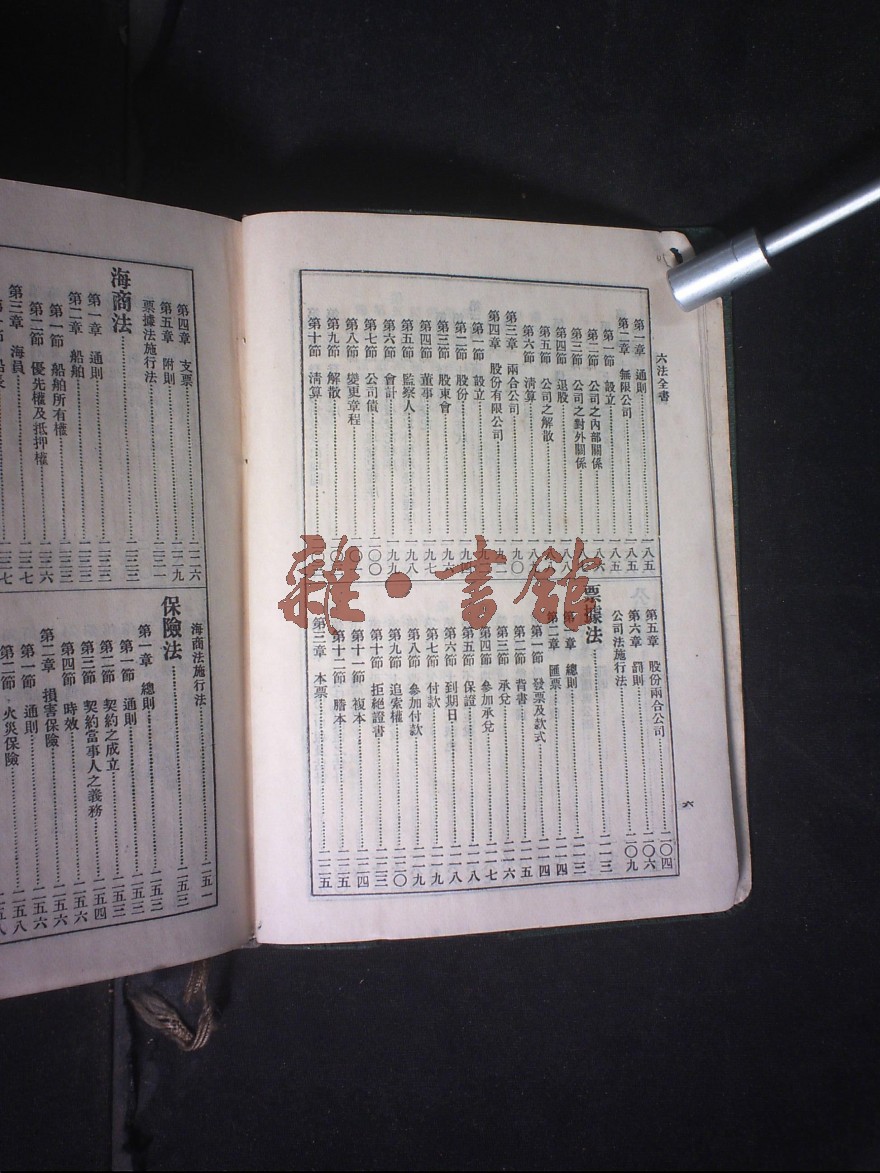 六法全書
第一章 通則 一八五
第二章 無限公司 一八五
第一節 設立 一八五
第二節 公司之內部關係 一八六
第三節 公司之對外關係
第四節 退股 一八八
第五節 公司之解散 一八八
第六節 清算 一八九
第三章 兩合公司 一九〇
第四章 股份有限公司
第一節 設立
第二節 股份 一九四
第三節 股東會 一九六
第四節 董事 一九七
第五節 監察人 一九八
第六節 會計 一九九
第七節 公司債 二〇〇
第八節 變更章程
第九節 解散
第十節 清算
第五章 股份兩合公司 二〇四
第六章 罰則 二〇六
公司法施行法 二〇九
票據法 二一三
第一章 總則 二一三
第二章 匯票 二一四
第一節 發票及款式 二一四
第二節 背書 二一五
第三節 承兌 二一六
第四節 參加承兌 二一七
第五節 保證 二一八
第六節 到期日 二一八
第七節 付款 二一九
第八節 參加付款 二一九
第九節 追索權 二二〇
第十節 拒絕證書 二二三
第十一節 複本 二二四
第十二節 謄本 二二五
第三章 本票 二二五
六
第四章 支票 二二六
第五章 附則 二二九
票據法施行法 二三一
海商法 二三三
第一章 通則 二三三
第二章 船舶 二三三
第一節 船舶所有權 二三三
第二節 優先權及抵押權 二三六
第三章 海員 二三七
第一節 船長 二三七
海商法施行法 二五一
保險法 二五三
第一章 總則 二五三
第一節 通則 二五三
第二節 契約之成立 二五三
第三節 契約當事人之義務 二五四
第四節 時效 二五六
第二章 損害保險 二五六
第一節 通則 二五六
第二節 火災保險 二五八
雜·書館